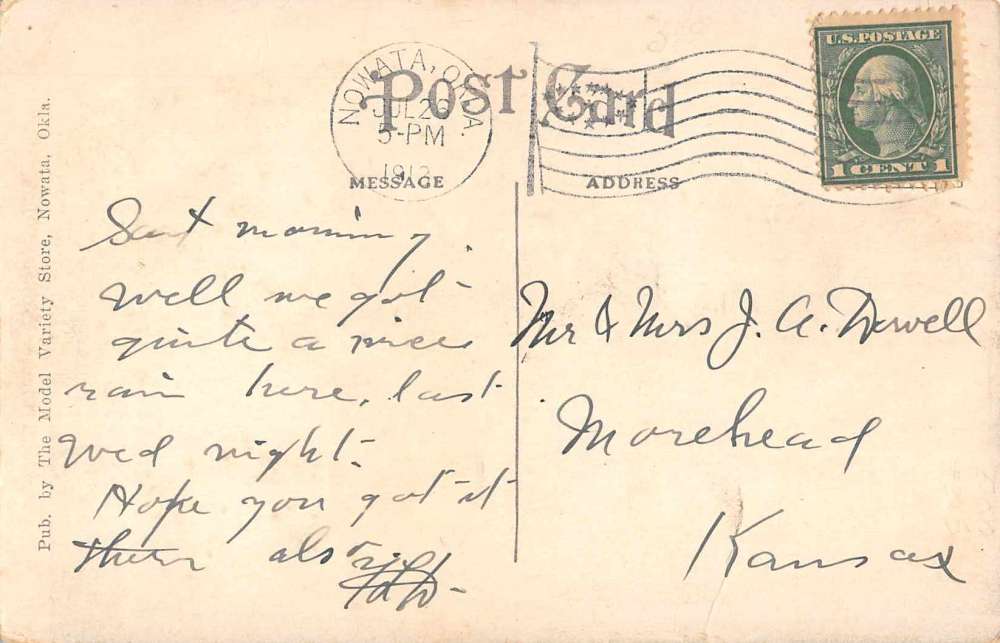 Pub. by The Model Variety Store, Nowata, Okla.
Post Card
NOWATA, OKLA.
JUL 26
5-PM
1913
U.S. POSTAGE
1 CENT 1
MESSAGE
ADDRESS
Sat morning.
Well we got
quite a nice
rain here, last
Wed night.
Hope you got it
there also
Mr & Mrs J. A. Dowell
Morehead
Kansas